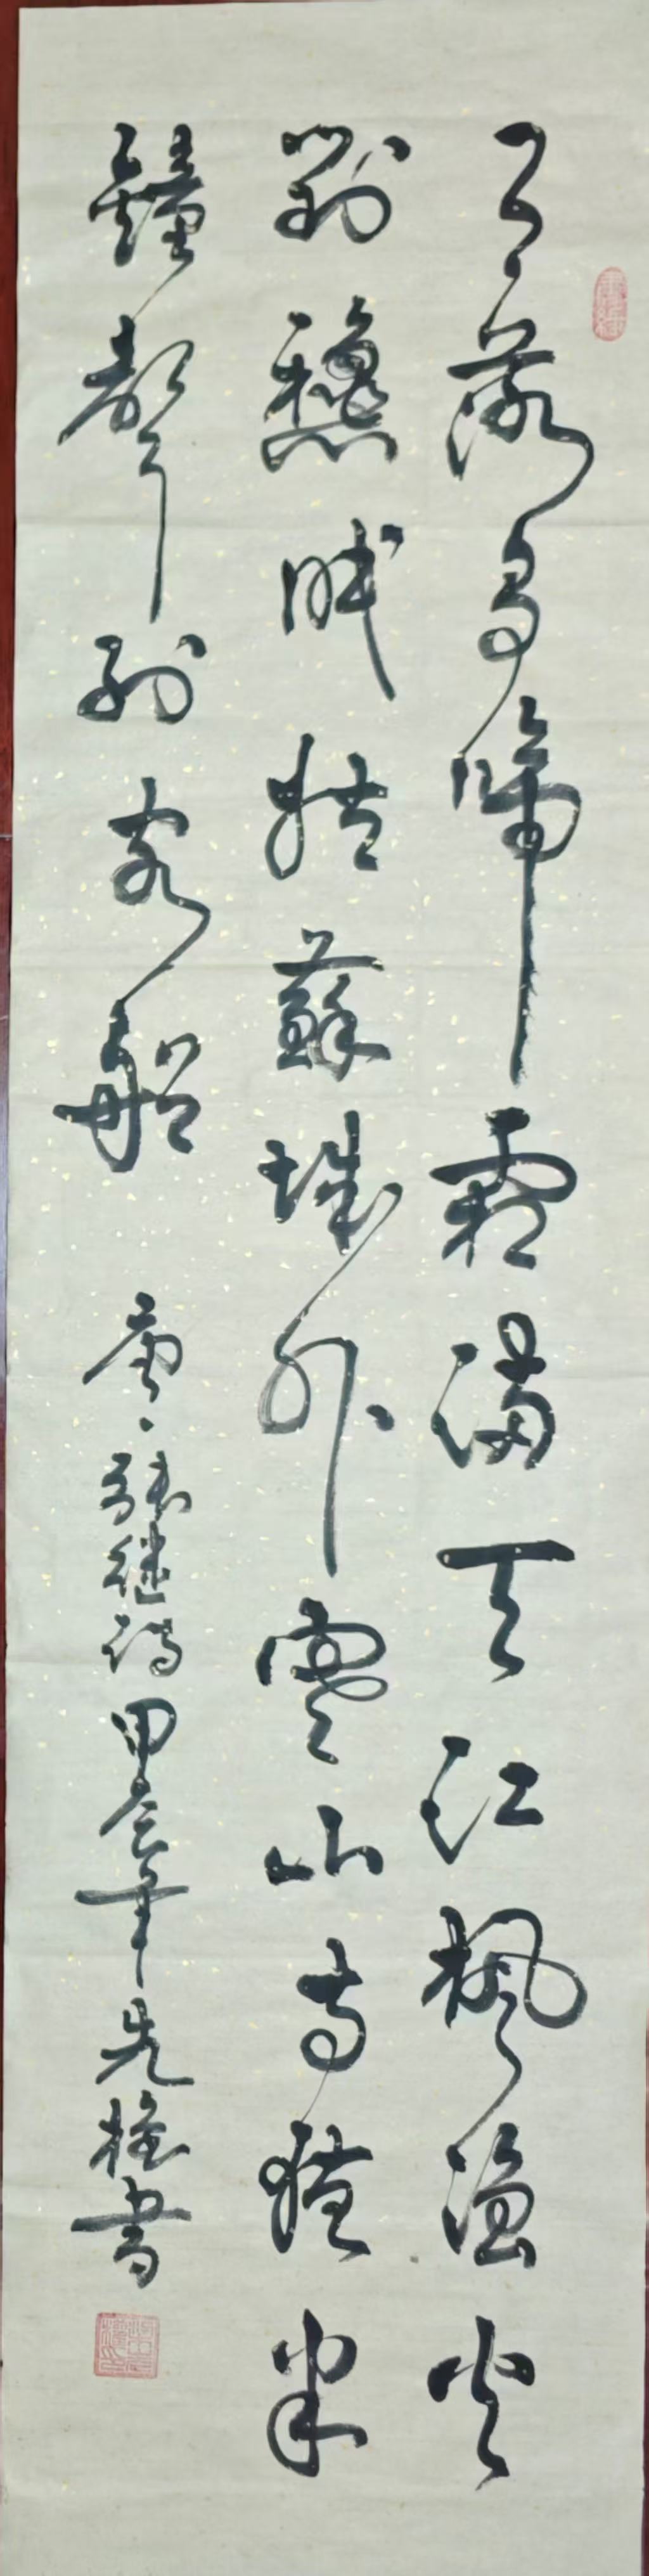 月落烏啼霜滿天江楓漁火
對愁眠姑蘇城外寒山寺夜半
鐘聲到客船 唐張繼詩甲辰年先權書